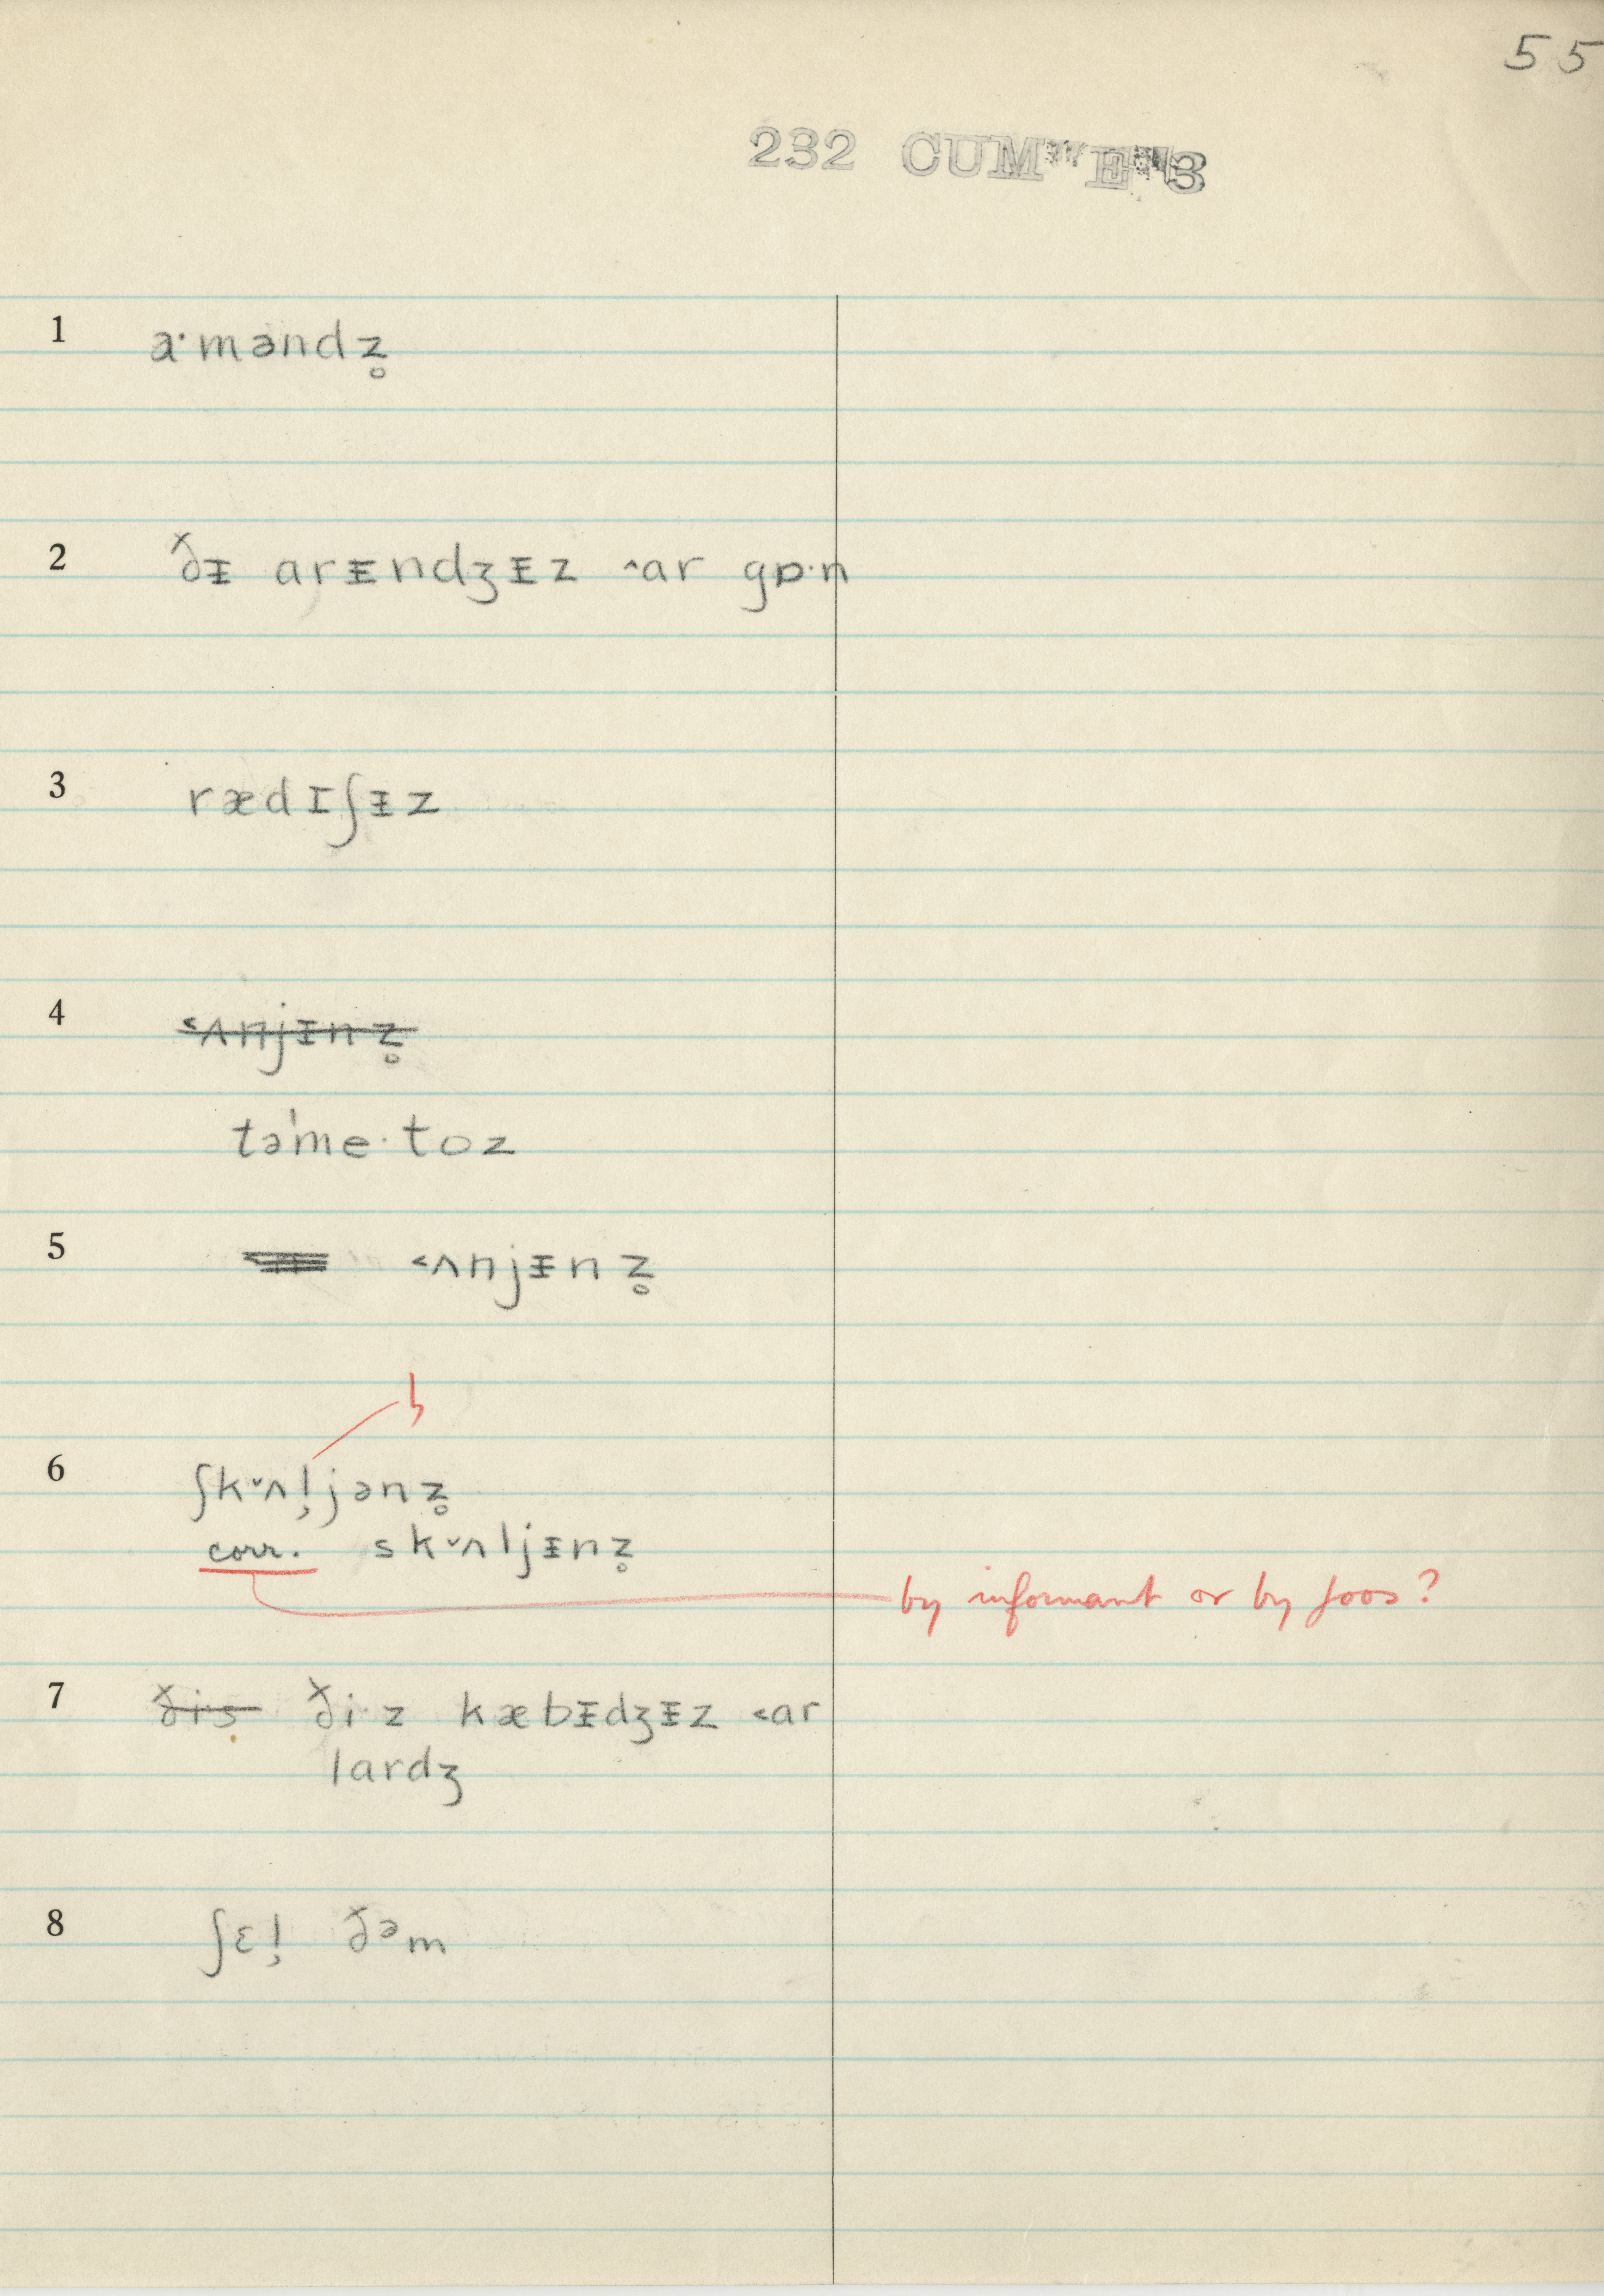 55
232 CUM
1 a·məndz̥
2 ðᵻ arᵻndʒᵻz ˄ar gɒ·n
3 rædɪʃᵻz
4 ˂ʌnjᵻnz̥
təˈme·toz
5 ˂ʌnjᵻnz̥
6 ʃk˅ʌl̡jənz̥
corr. sk˅ʌljᵻnz̥
by informant or by Joos?
7 ðis ði·z kæbᵻdʒᵻz ˂ar
lardʒ
8 ʃɛl̡ ðəm